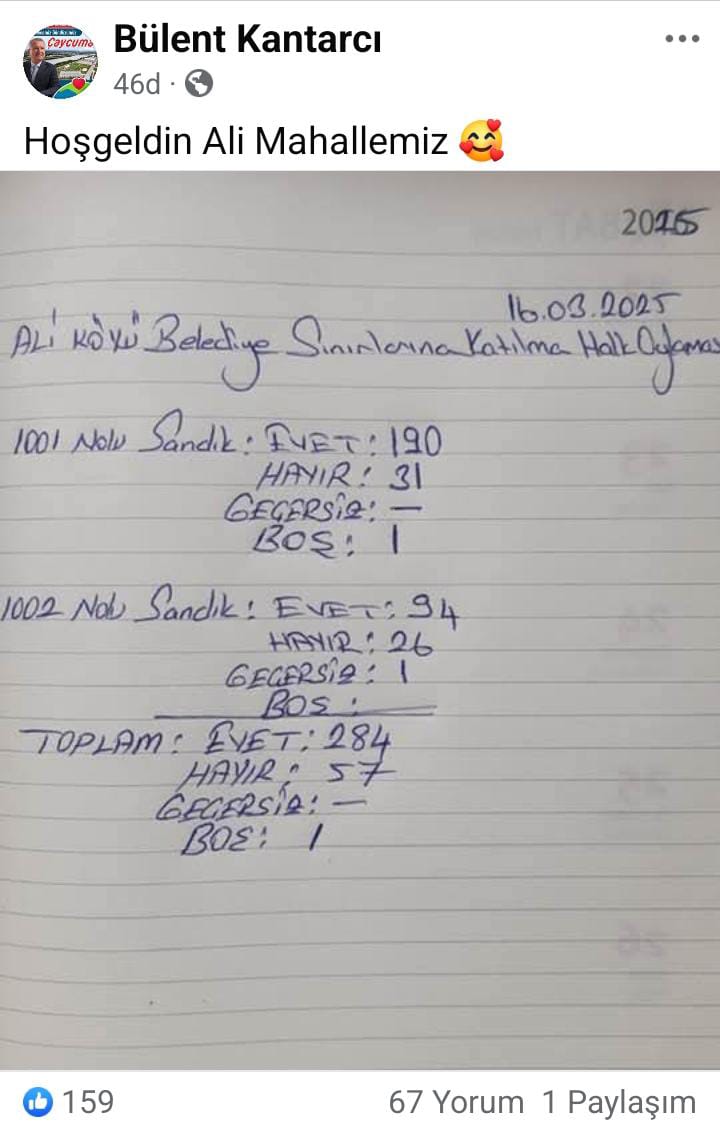 Bülent Kantarcı
46d ·
Hoşgeldin Ali Mahallemiz 🥰
2025
16.03.2025
ALİ KÖYÜ Belediye Sınırlarına Katılma Halk Oylaması
1001 Nolu Sandık: EVET: 190
HAYIR: 31
GEÇERSİZ: —
BOŞ: 1
1002 Nolu Sandık: EVET: 94
HAYIR: 26
GEÇERSİZ: 1
BOŞ:
TOPLAM: EVET: 284
HAYIR: 57
GEÇERSİZ: —
BOŞ: 1
159
67 Yorum 1 Paylaşım